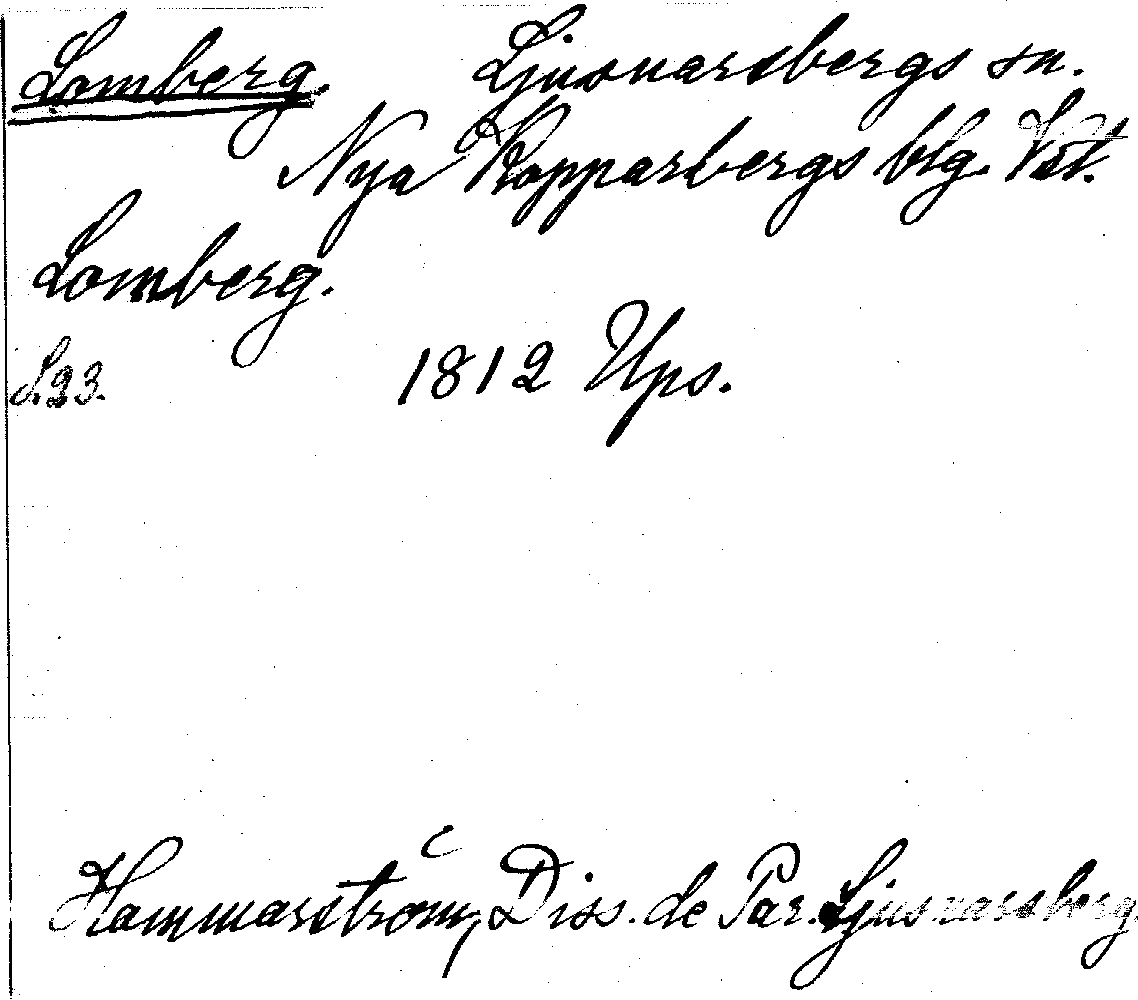 Lomberg. Ljusnarsbergs sn.
Nya Kopparbergs blg. Vstl.
Lomberg.
S. 23. 1812 Ups.
Hammarström, Diss. de Par. Ljusnarsberg